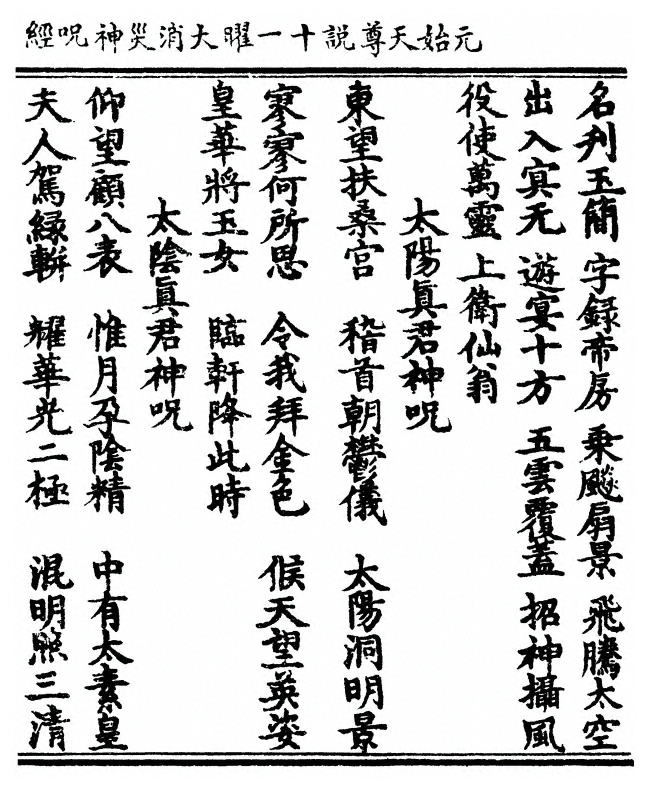 元始天尊説十一曜大消災神呪經
名列玉簡　字録帝房　乗飈扇景　飛騰太空
出入㝠无　遊宴十方　五雲覆蓋　招神攝風
役使萬靈　上衛仙翁
太陽眞君神呪
東望扶桑宫　稽首朝鬱儀　太陽洞明景
寥寥何所思　令我拜金色　候天望英姿
皇華將玉女　臨軒降此時
太陰眞君神呪
仰望顧八表　惟月孕陰精　中有太素皇
夫人駕緑軿　耀華光二極　混明照三清